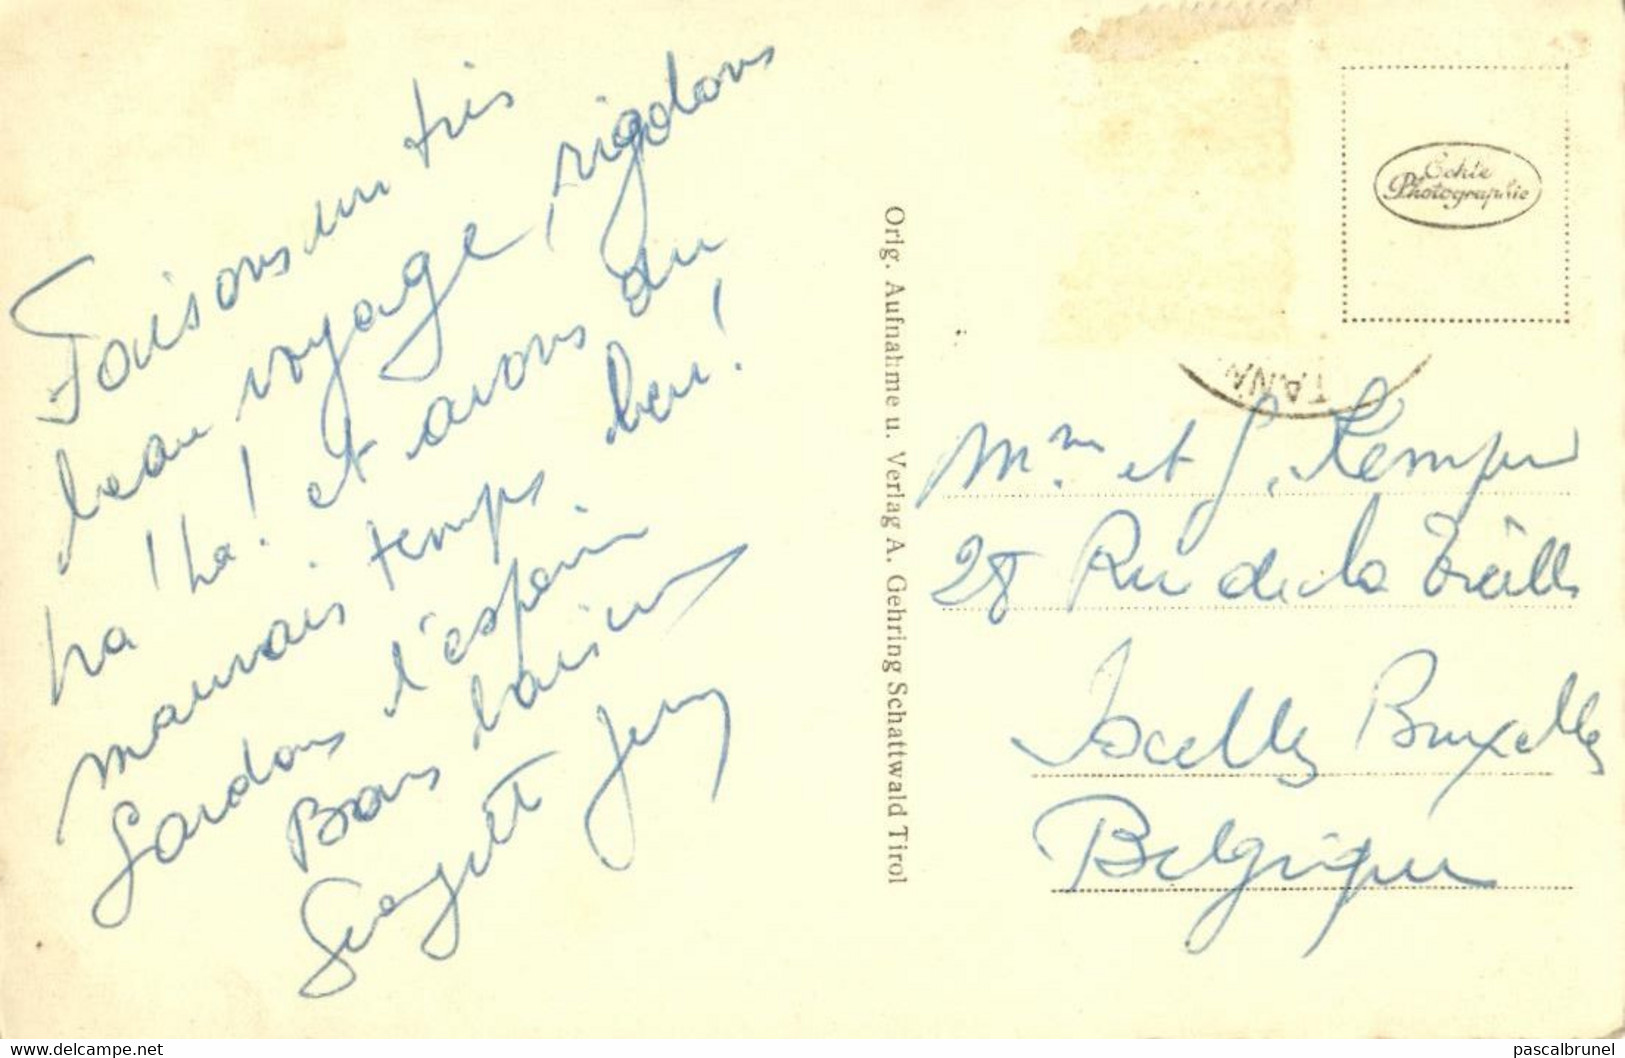 Faisons un très
beau voyage, rigolons
ha! ha! et avons du
mauvais temps heu!
Gardons l'espoir
Bons baisers
Georgette Jeny
Orig. Aufnahme u. Verlag A. Gehring Schattwald Tirol
Echte
Photographie
TANN
Mm et J.
28 Rue de la Treille
Ixelles Bruxelles
Belgique
www.delcampe.net
pascalbrunel